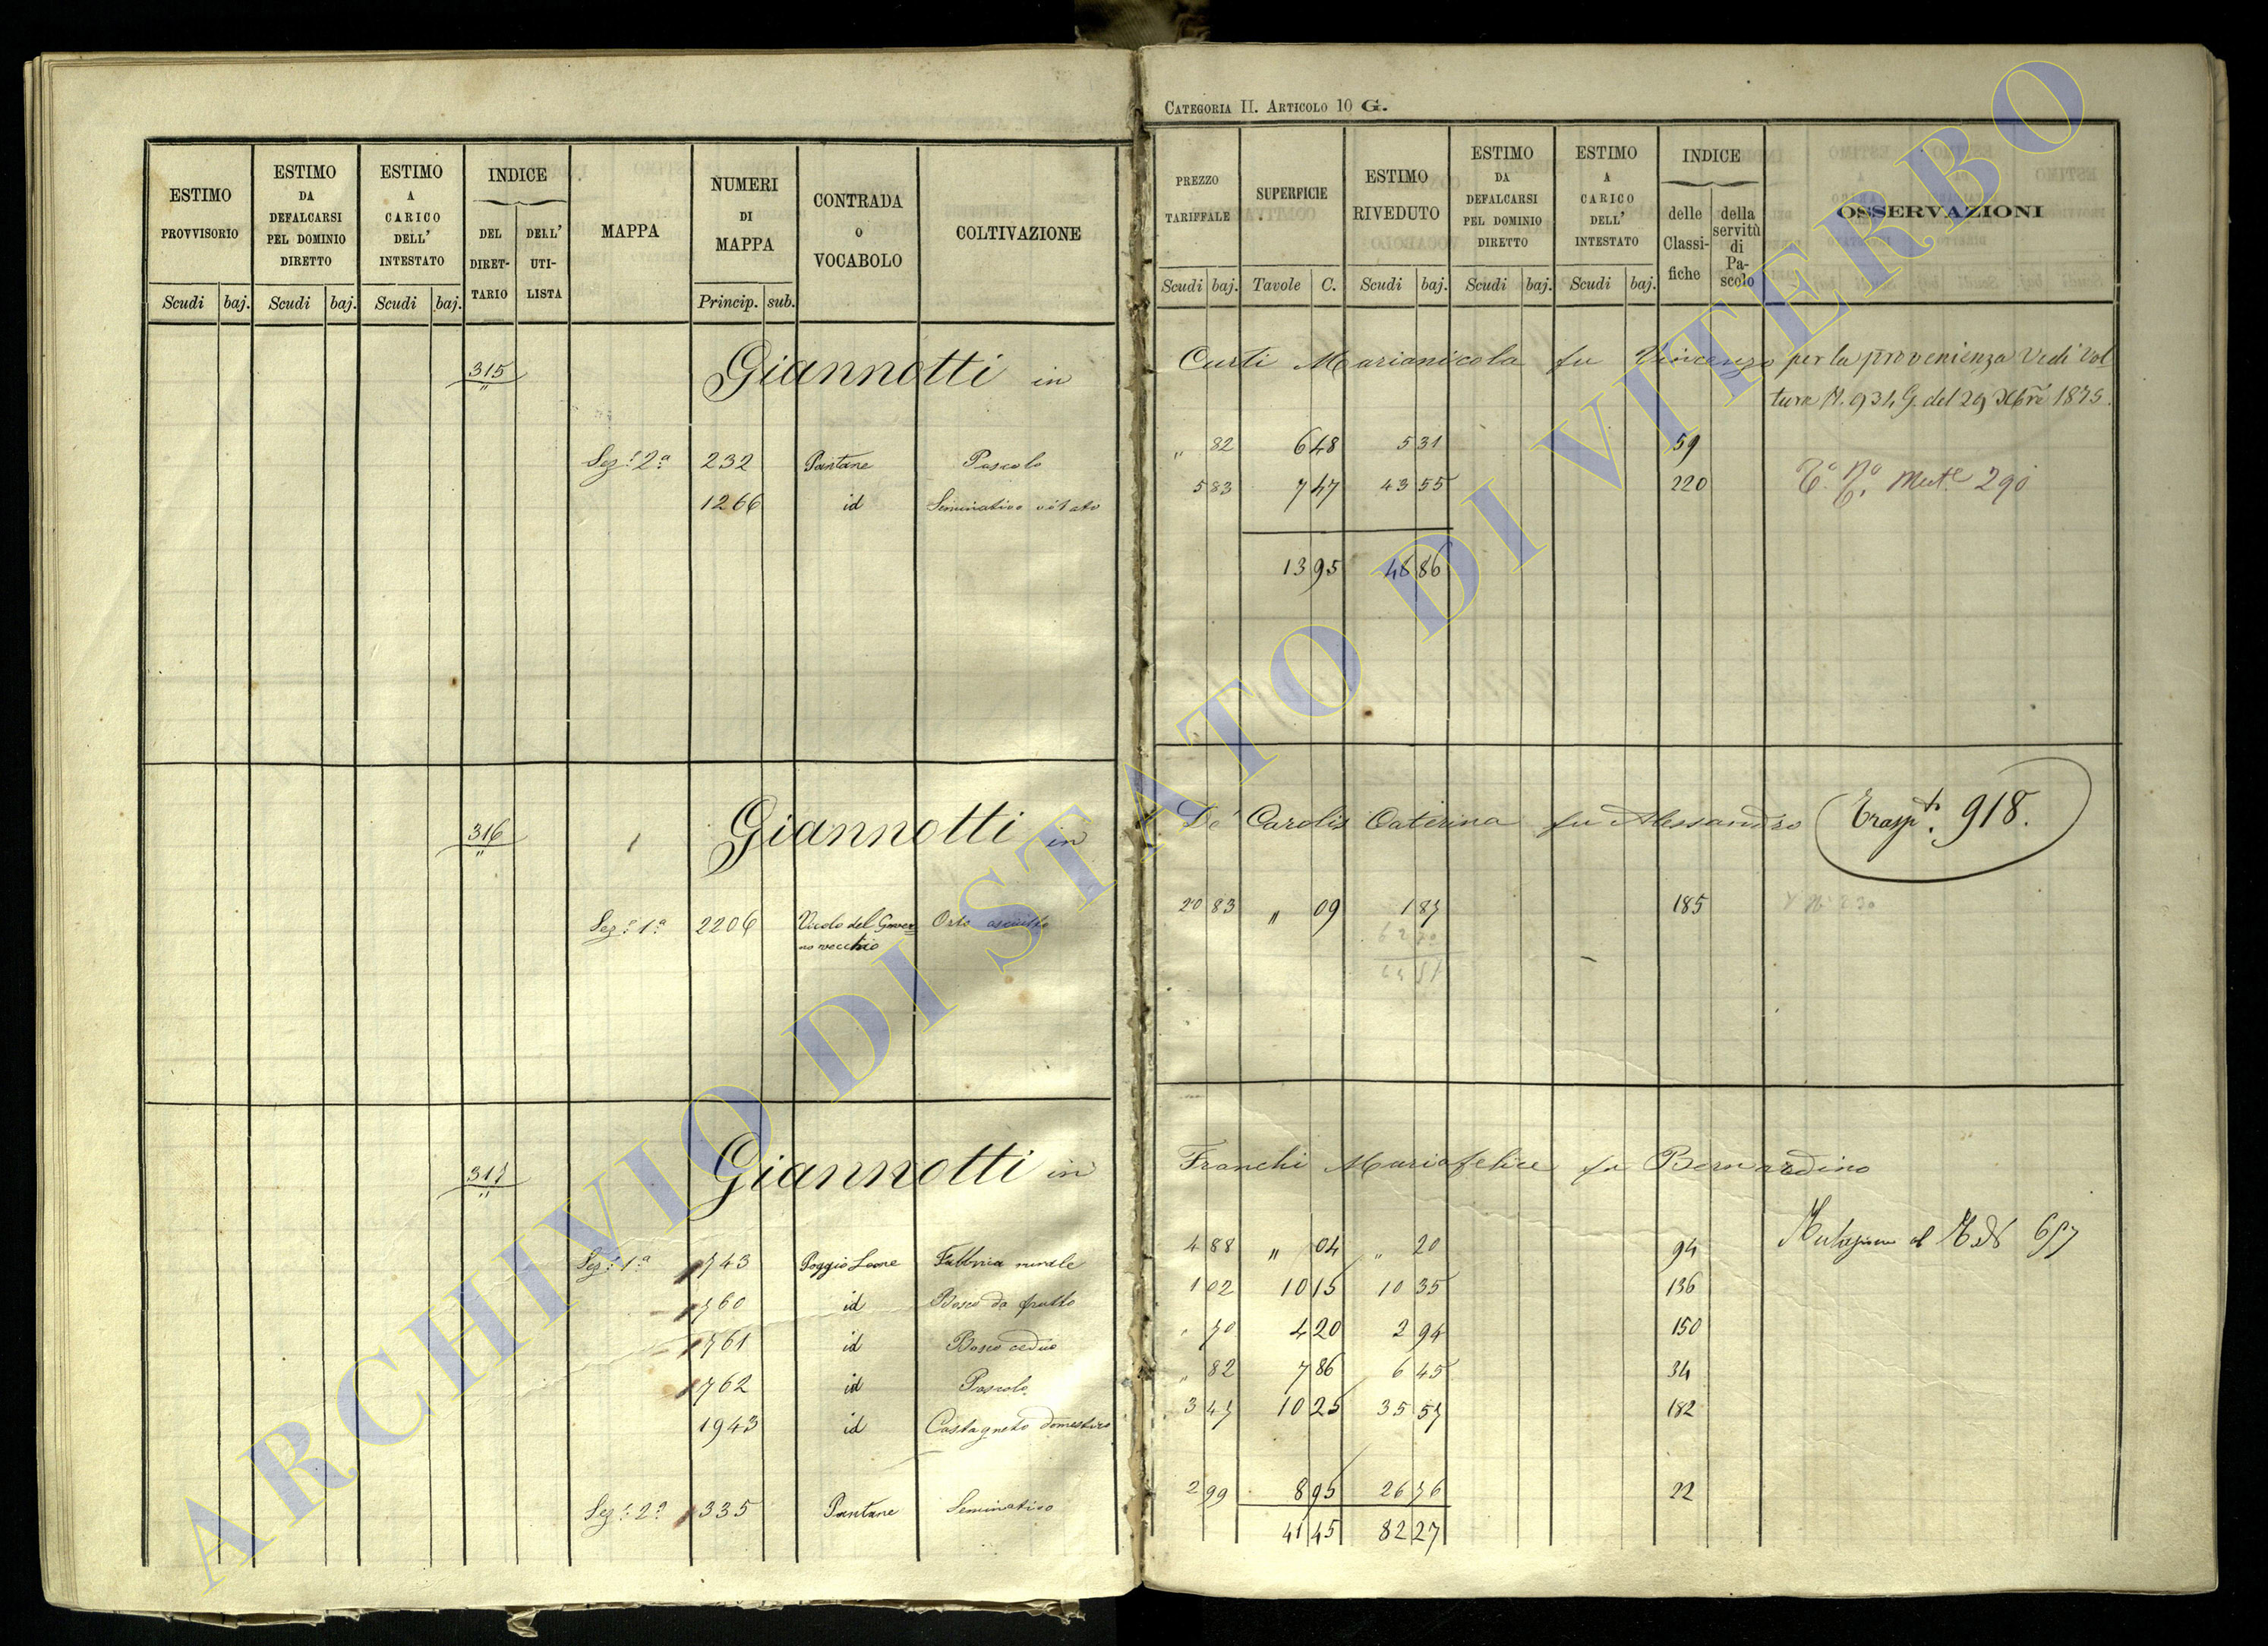 CATEGORIA II. ARTICOLO 10 G.
ESTIMO PROVVISORIO
ESTIMO DA DEFALCARSI PEL DOMINIO DIRETTO
ESTIMO A CARICO DELL' INTESTATO
INDICE
DEL DIRET- TARIO
DELL' UTI- LISTA
MAPPA
NUMERI DI MAPPA
CONTRADA o VOCABOLO
COLTIVAZIONE
Scudi baj. Scudi baj. Scudi baj. Princip. sub.
PREZZO TARIFFALE
SUPERFICIE
ESTIMO RIVEDUTO
ESTIMO DA DEFALCARSI PEL DOMINIO DIRETTO
ESTIMO A CARICO DELL' INTESTATO
INDICE
delle Classi- fiche
della servitù di Pa- scolo
OSSERVAZIONI
Scudi baj. Tavole C. Scudi baj. Scudi baj. Scudi baj.
315 Giannotti in Curti Marianicola fu Vincenzo per la provenienza Vedi Vol
tura N. 934 G. del 29 Xbre 1875.
Sez. 2a 232 Pantane Pascolo " 82 6 48 5 31 59
1266 id Seminativo vitato 5 83 7 47 43 55 220 Mut. 290
13 95 48 86
316 Giannotti in De Carolis Caterina fu Alessandro Trasp.to 918.
Sez. 1a 2206 Vicolo del Gover= Orto asciutto 20 83 " 09 1 87 185
no vecchio
317 Giannotti in Franchi Mariafelice fu Bernardino
Sez. 1a 743 Poggio Leone Fabbrica rurale 4 88 " 04 " 20 94
760 id Bosco da frutto 1 02 10 15 10 35 136
761 id Bosco ceduo " 70 4 20 2 94 150
762 id Pascolo " 82 7 86 6 45 34
1943 id Castagneto domestico 3 47 10 25 35 57 182
Sez. 2a 335 Pantane Seminativo 2 99 8 95 26 76 22
41 45 82 27
ARCHIVIO DI STATO DI VITERBO